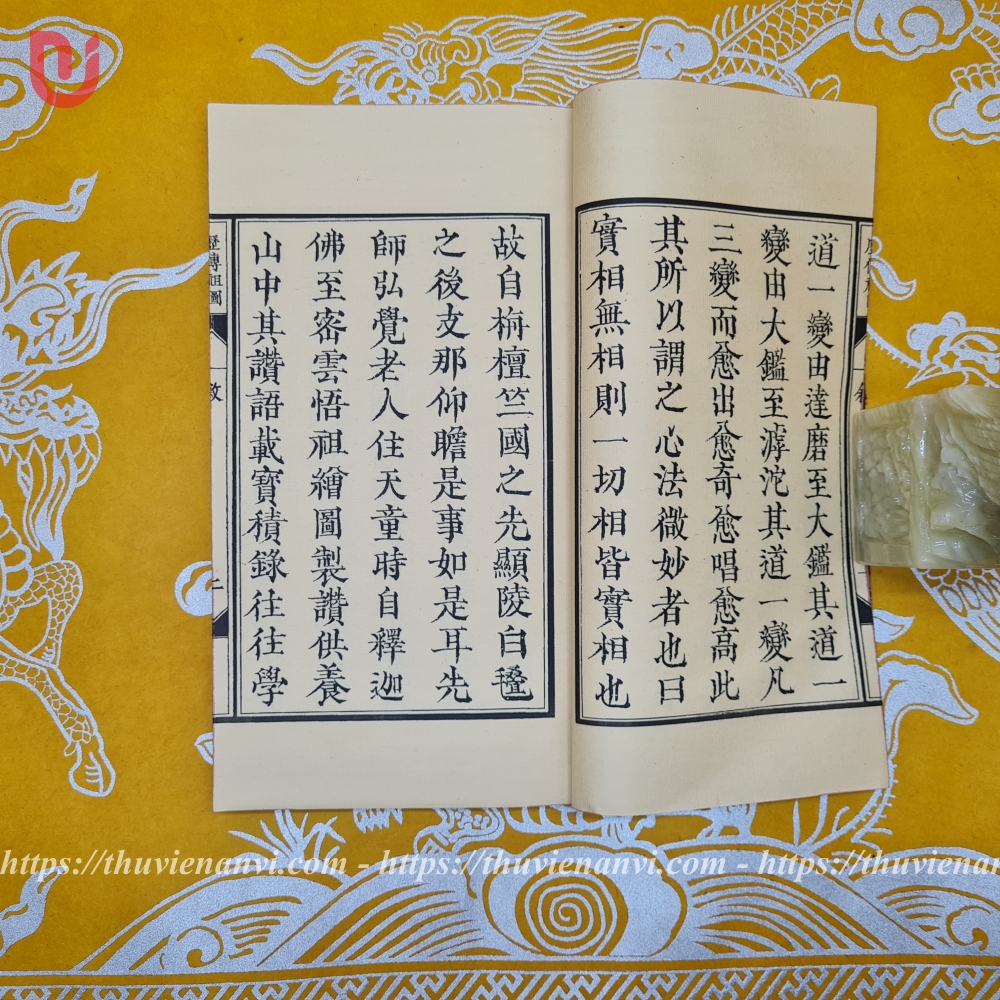 道一變由達磨至大鑑其道一
變由大鑑至滹沱其道一變凡
三變而愈出愈奇愈唱愈高此
其所以謂之心法微妙者也曰
實相無相則一切相皆實相也
故自栴檀竺國之先顯陵白㲲
之後支那仰瞻是事如是耳先
師弘覺老人住天童時自釋迦
佛至密雲悟祖繪圖製讚供養
山中其讚語載寶積錄往往學
歷傳祖圖
https://thuvienanvi.com - https://thuvienanvi.com - https://thuvienanvi